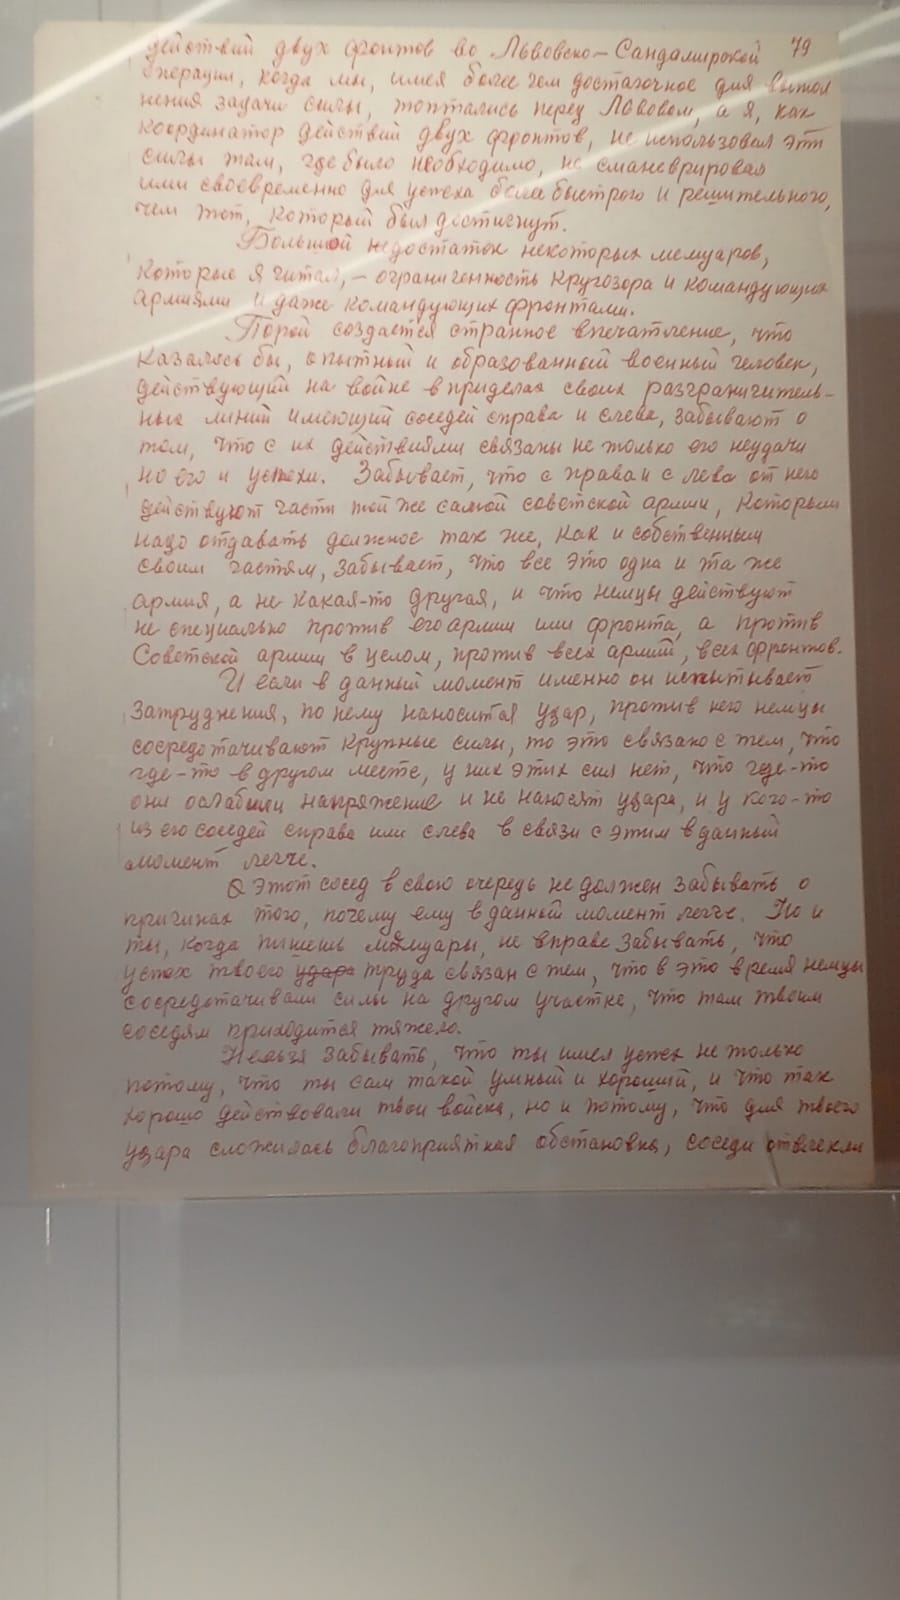 79
действий двух фронтов во Львовско-Сандамирской
операции, когда мы, имея более чем достаточное для выпол
нения задачи силы, топтались перед Львовом, а я, как
координатор действий двух фронтов, не использовал эти
силы там, где было необходимо, не сманеврировал
ими своевременно для успеха более быстрого и решительного,
чем тот, который был достигнут.
Большой недостаток некоторых мемуаров,
которые я читал, – ограниченность кругозора и командующих
армиями и даже командующих фронтами.
Порой создается странное впечатление, что
казалось бы, опытный и образованный военный человек,
действующий на войне в приделах своих разграничитель-
ных линий имеющий соседей справа и слева, забывают о
том, что с их действиями связаны не только его неудачи
но его и успехи. Забывает, что с права и с лева от него
действуют части той же самой советской армии, которым
надо отдавать должное так же, как и собственным
своим частям, забывает, что все это одна и та же
армия, а не какая-то другая, и что немцы действуют
не специально против его армии или фронта, а против
Советской армии в целом, против всех армий, всех фронтов.
И если в данный момент именно он испытывает
затруднения, по нему наносится удар, против него немцы
сосредотачивают крупные силы, то это связано с тем, что
где-то в другом месте, у них этих сил нет, что где-то
они ослабили напряжение и не наносят удара, и у кого-то
из его соседей справа или слева в связи с этим в данный
момент легче.
Этот сосед в свою очередь не должен забывать о
причинах того, почему ему в данный момент легче. Но и
ты, когда пишешь мемуары, не вправе забывать, что
успех твоего удара труда связан с тем, что в это время немцы
сосредотачивали силы на другом участке, что там твоим
соседям приходится тяжело.
Нельзя забывать, что ты имел успех не только
потому, что ты сам такой умный и хороший, и что так
хорошо действовали твои войска, но и потому, что для твоего
удара сложилась благоприятная обстановка, соседи отвлекли